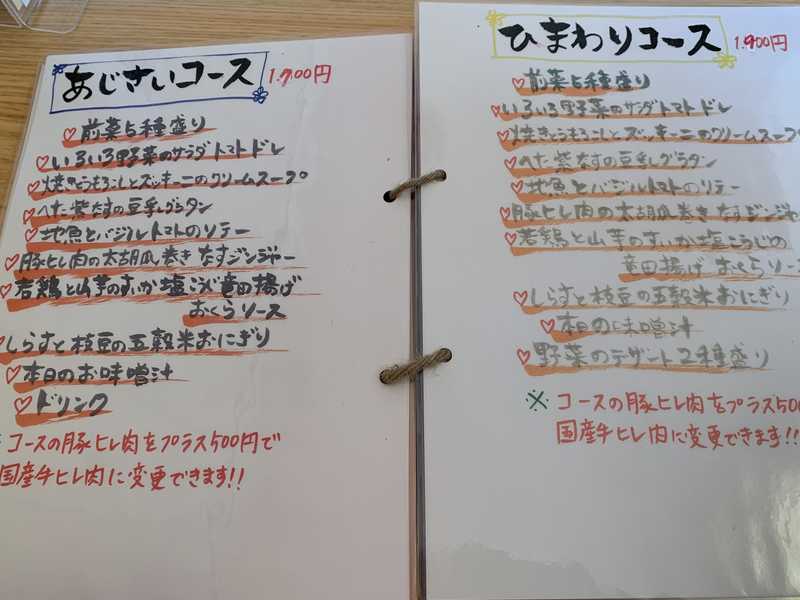 あじさいコース 1.700円
♡前菜5種盛り
♡いろいろ野菜のサラダトマトドレ
♡焼きとうもろこしとズッキーニのクリームスープ
♡へた紫なすの豆乳グラタン
♡地魚とバジルトマトのソテー
♡豚ヒレ肉の太胡瓜巻き なすジンジャー
♡若鶏と山芋のすいか塩こうじ竜田揚げ
おくらソース
しらすと枝豆の五穀米おにぎり
♡本日のお味噌汁
♡ドリンク
コースの豚ヒレ肉をプラス500円で
国産牛ヒレ肉に変更できます!!
ひまわりコース 1.900円
♡前菜5種盛り
♡いろいろ野菜のサラダトマトドレ
♡焼きとうもろこしとズッキーニのクリームスープ
♡へた紫なすの豆乳グラタン
♡地魚とバジルトマトのソテー
♡豚ヒレ肉の太胡瓜巻き なすジンジャ
♡若鶏と山芋のすいか塩こうじの
竜田揚げ おくらソー
♡しらすと枝豆の五穀米おにぎり
♡本日の味噌汁
♡野菜のデザート2種盛り
※コースの豚ヒレ肉をプラス500
国産牛ヒレ肉に変更できます!!